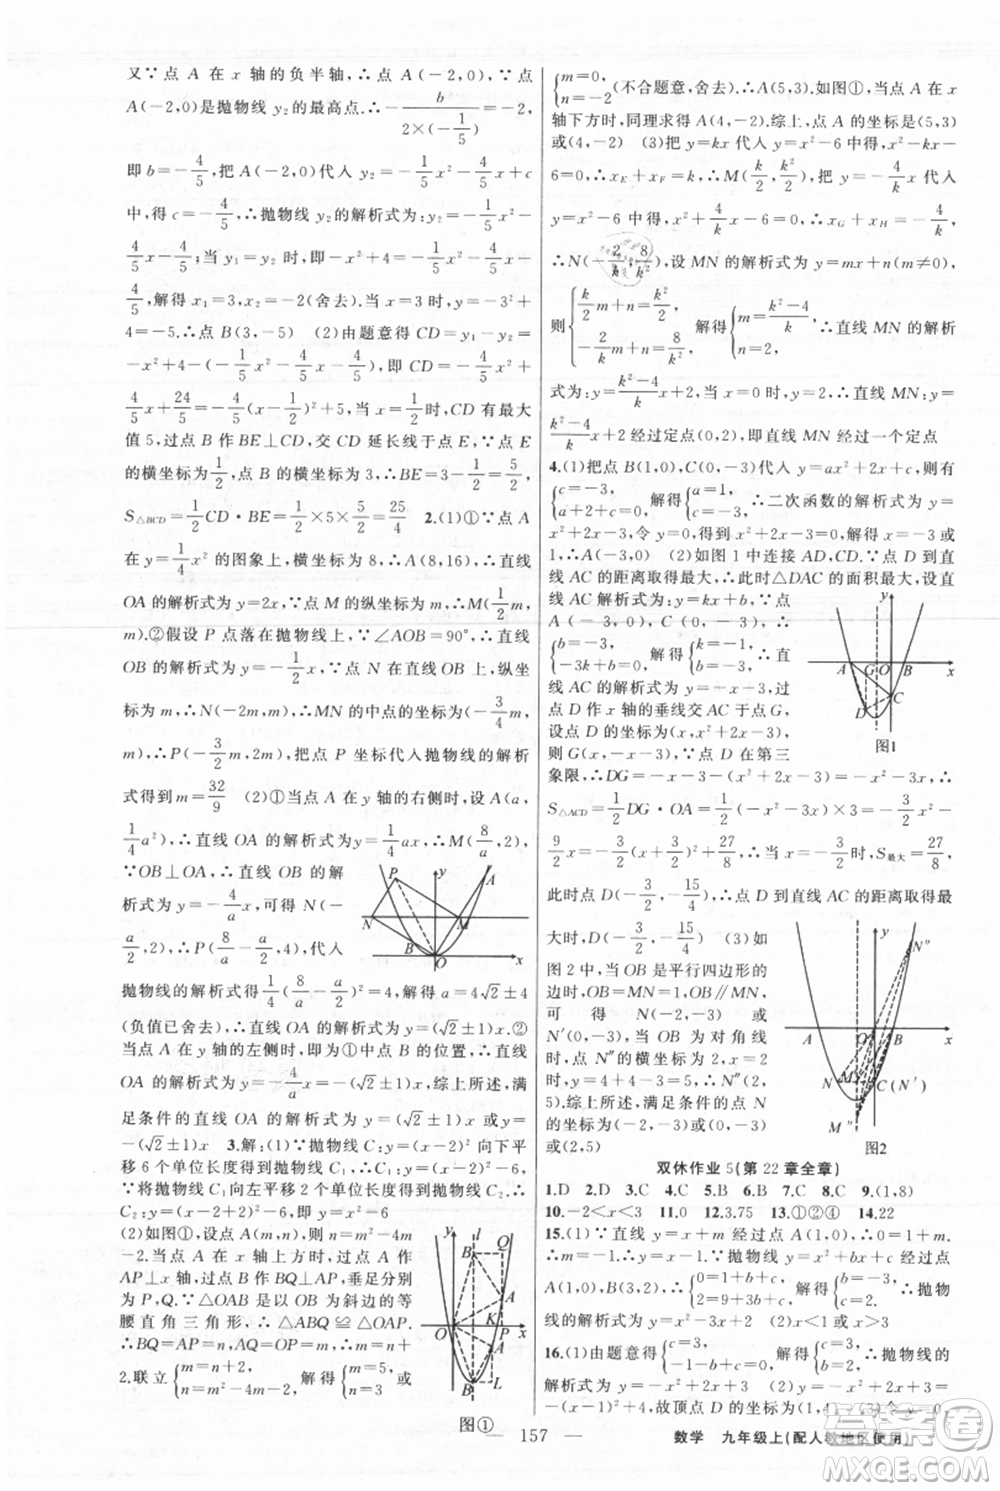 又∵点 A 在 x 轴的负半轴,∴点 A(-2,0),∵点
A(-2,0)是抛物线 y₂的最高点.∴-b/(2×(-1/5))=-2,
即 b=-4/5,把 A(-2,0)代入 y₂=-1/5x²-4/5x+c
中,得 c=-4/5,∴抛物线 y₂的解析式为:y₂=-1/5x²-
4/5x-4/5;当 y₁=y₂ 时,即-x²+4=-1/5x²-4/5x-
4/5,解得 x₁=3,x₂=-2(舍去).当 x=3 时,y=-x²+
4=-5.∴点 B(3,-5) (2)由题意得 CD=y₁-y₂=
-x²+4-(-1/5x²-4/5x-4/5),即 CD=-4/5x²+
4/5x+24/5=-4/5(x-1/2)²+5,∴当 x=1/2时,CD 有最大
值 5,过点 B 作 BE⊥CD,交 CD 延长线于点 E,∵点 E
的横坐标为1/2,点 B 的横坐标为 3,∴BE=3-1/2=5/2,
S△BCD=1/2CD·BE=1/2×5×5/2=25/4 2.(1)①∵点 A
在 y=1/4x²的图象上,横坐标为 8,∴A(8,16),∴直线
OA 的解析式为 y=2x,∵点 M 的纵坐标为 m,∴M(1/2m,
m).②假设 P 点落在抛物线上,∵∠AOB=90°,∴直线
OB 的解析式为 y=-1/2x,∵点 N 在直线 OB 上,纵坐
标为 m,∴N(-2m,m),∴MN 的中点的坐标为(-3/4m,
m),∴P(-3/2m,2m),把点 P 坐标代入抛物线的解析
式得到 m=32/9 (2)①当点 A 在 y 轴的右侧时,设 A(a,
1/4a²),∴直线 OA 的解析式为 y=1/4ax,∴M(8/a,2),
∵OB⊥OA,∴直线 OB 的解
析式为 y=-4/ax,可得 N(-
a/2,2),∴P(8/a-a/2,4),代入
抛物线的解析式得1/4(8/a-a/2)²=4,解得 a=4√2±4
(负值已舍去),∴直线 OA 的解析式为 y=(√2±1)x.②
当点 A 在 y 轴的左侧时,即为①中点 B 的位置,∴直线
OA 的解析式为 y=-4/ax=-(√2±1)x,综上所述,满
足条件的直线 OA 的解析式为 y=(√2±1)x 或 y=
-(√2±1)x 3.解:(1)∵抛物线 C:y=(x-2)²向下平
移 6 个单位长度得到抛物线 C₁,∴C₁:y=(x-2)²-6,
∵将抛物线 C₁向左平移 2 个单位长度得到抛物线 C₂,∴
C₂:y=(x-2+2)²-6,即 y=x²-6
(2)如图①,设点 A(m,n),则 n=m²-4m
-2.当点 A 在 x 轴上方时,过点 A 作
AP⊥x 轴,过点 B 作 BQ⊥AP,垂足分别
为 P,Q,∵△OAB 是以 OB 为斜边的等
腰直角三角形,∴△ABQ≌△OAP.
∴BQ=AP=n,AQ=OP=m,∴m-n=
2,联立{m-n=2, n=m²-4m-2,解得{m=5, n=3或
y l B Q A K P O x L B
图①
P y A N M B O x
{m=0, n=-2(不合题意,舍去).∴A(5,3).如图①,当点 A 在 x
轴下方时,同理求得 A(4,-2).综上,点 A 的坐标是(5,3)
或(4,-2) (3)把 y=kx 代入 y=x²-6 中得,x²-kx-6
=0,∴xE+xF=k,∴M(k/2,k²/2),把 y=-4/kx 代入
y=x²-6 中得,x²+4/kx-6=0,∴xG+xH=-4/k,
∴N(-2/k,8/k²),设 MN 的解析式为 y=mx+n(m≠0),
则{k/2m+n=k²/2, -2/km+n=8/k², 解得{m=(k²-4)/k, n=2,∴直线 MN 的解析
式为:y=(k²-4)/kx+2,当 x=0 时,y=2,∴直线 MN:y=
(k²-4)/kx+2 经过定点(0,2),即直线 MN 经过一个定点
4.(1)把点 B(1,0)代入 y=ax²+2x+c,则有
{c=-3, a+2+c=0,解得{a=1, c=-3,∴二次函数的解析式为 y=
x²+2x-3,令 y=0,得到 x²+2x-3=0,解得 x=-3 或
1,∴A(-3,0) (2)如图 1 中连接 AD,CD.∵点 D 到
直线 AC 的距离取得最大,∴此时△DAC 的面积最大,设直
线 AC 解析式为:y=kx+b,∵点
A(-3,0),C(0,-3),∴
{b=-3, -3k+b=0,解得{k=-1, b=-3,∴直
线 AC 的解析式为 y=-x-3,过
点 D 作 x 轴的垂线交 AC 于点 G,
设点 D 的坐标为(x,x²+2x-3),
则 G(x,-x-3),∵点 D 在第三
象限,∴DG=-x-3-(x²+2x-3)=-x²-3x,∴
S△ACD=1/2DG·OA=1/2(-x²-3x)×3=-3/2x²-
9/2x=-3/2(x+3/2)²+27/8,∴当 x=-3/2时,S最大=27/8,
此时点 D(-3/2,-15/4),∴点 D 到直线 AC 的距离取得最
大时,D(-3/2,-15/4) (3)如
图 2 中,当 OB 是平行四边形的
边时,OB=MN=1,OB∥MN,
可得 N(-2,-3)或
N′(0,-3),当 OB 为对角线
时,点 N″的横坐标为 2,x=2
时,y=4+4-3=5,∴N″(2,
5).综上所述,满足条件的点 N
的坐标为(-2,-3)或(0,-3)
或(2,5)
y A G O B x C D
图1
y N″ A O B x N M C(N′) M″
图2
双休作业 5(第 22 章全章)
1.D 2.D 3.C 4.C 5.C 6.D 7.C 8.C 9.(1,8)
10.-2<x<3 11.0 12.3.75 13.①②④ 14.22
15.(1)∵直线 y=x+m 经过点 A(1,0),∴0=1+m.
∴m=-1.∴直线解析式为 y=x-1,∵抛物线 y=x²+bx+c 经过点
A(1,0),B(3,2),∴{0=1+b+c, 2=9+3b+c,解得{b=-3, c=2.∴抛物
线的解析式为 y=x²-3x+2 (2)x<1 或 x>3
16.(1)由题意得{c=3, -9+3b+c=0,解得{b=2, c=3,∴抛物线的
解析式为 y=-x²+2x+3 (2)∵y=-x²+2x+3=
-(x-1)²+4,故顶点 M 的坐标为(1,4)
157
数学 九年级上(配人教地区使用)
答案圈
MXQE.COM